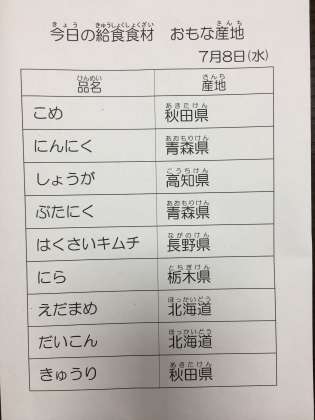 今日の給食食材　おもな産地
7月8日(水)
品名　産地
こめ　秋田県
にんにく　青森県
しょうが　高知県
ぶたにく　青森県
はくさいキムチ　長野県
にら　栃木県
えだまめ　北海道
だいこん　北海道
きゅうり　秋田県